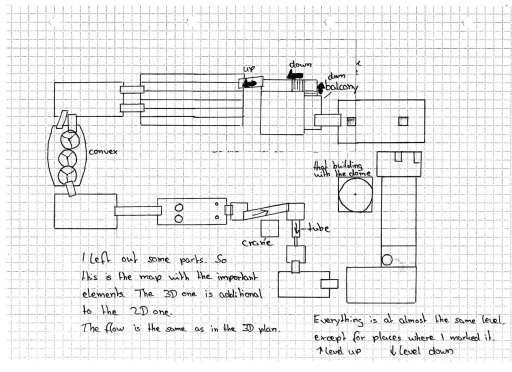 up
down
down
balcony
convex
that building
with the dome
crane
tube
I left out some parts. So
this is the map with the important
elements. The 3D one is additional
to the 2D one.
The flow is the same as in the 3D plan.
Everything is at almost the same level,
except for places where I marked it.
↑ level up ↓ level down